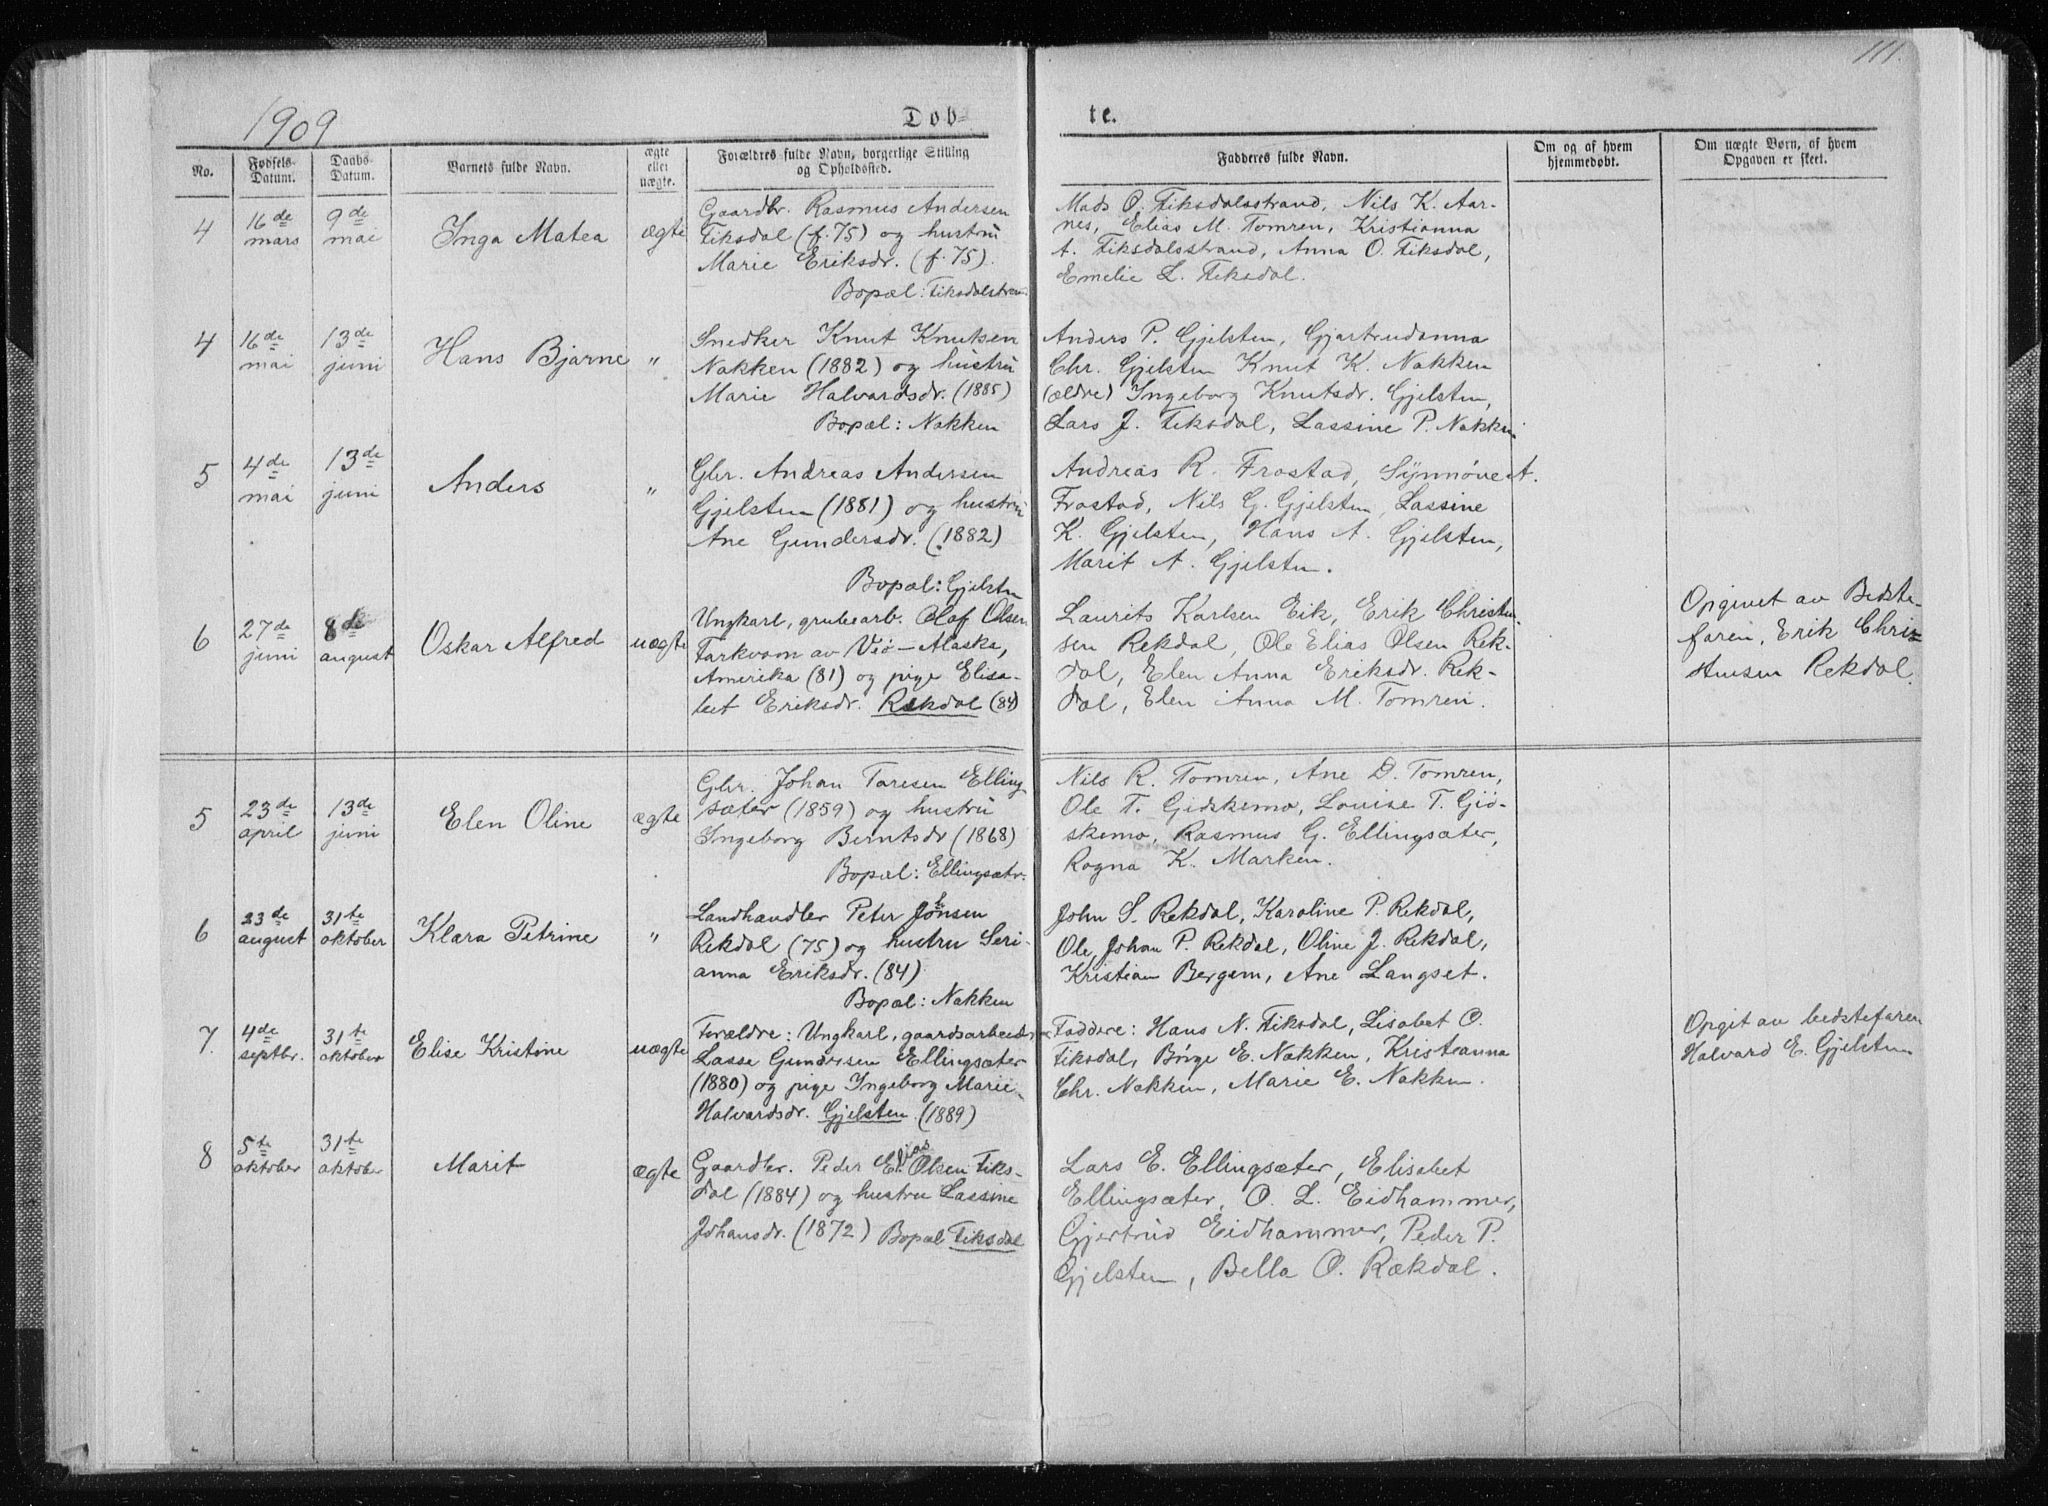 111.
1909
Døb-
te.
No.
Fødsels-Datum.
Daabs-Datum.
Barnets fulde Navn.
ægte eller uægte.
Forældres fulde Navn, borgerlige Stilling og Opholdssted.
Fadderes fulde Navn.
Om og af hvem hjemmedøbt.
Om uægte Børn, af hvem Opgaven er skeet.
4
16de mars
9de mai
Inga Matea
ægte
Gaardbr. Rasmus Andersen
Tiksdal (f. 75) og hustru
Marie Eriksdr. (f. 75).
Bopæl: Tiksdalstran
Mads O. Tiksdalsstrand, Nils K. Aar-
nes, Elias M. Tomren, Kristianna
A. Tiksdalsstrand, Anna O. Tiksdal,
Emelie L. Tiksdal.
4
16de mai
13de juni
Hans Bjarne
"
Snedker Knut Knutsen
Nakken (1882) og hustru
Marie Halvardsdr. (1885)
Bopæl: Nakken
Anders P. Gjelsten, Gjartrudanna
Chr. Gjelsten Knut K. Nakken
(ældre) Ingeborg Knutsdr. Gjelsten,
Lars J. Tiksdal, Lassine P. Nakken
5
4de mai
13de juni
Anders
"
Gbr. Andreas Andersen
Gjelsten (1881) og hustru
Ane Gundersdr. (1882)
Bopæl: Gjelsten
Andreas R. Frostad, Synnøve A.
Frostad, Nils G. Gjelsten, Lassine
K. Gjelsten, Hans A. Gjelsten,
Marit A. Gjelsten.
6
27de juni
8de august
Oskar Alfred
uægte
Ungkarl, grubearb. Olaf Olsen
Tarkvam av Viø - Alaska,
Amerika (81) og pige Elisa-
bet Eriksdr. Rekdal (84)
Laurits Karlsen Eik, Erik Christen-
sen Rekdal, Ole Elias Olsen Rek-
dal, Elen Anna Eriksdr. Rek-
dal, Elen Anna M. Tomren.
Opgivet av Bedste-
faren, Erik Chris-
tensen Rekdal.
5
23de april
13de juni
Elen Oline
ægte
Gbr. Johan Taresen Elling
sæter (1859) og hustru
Ingeborg Berntsdr (1868)
Bopæl: Ellingsætr.
Nils R. Tomren, Ane D. Tomren,
Ole T. Gidskemo, Louise T. Gid-
skemo, Rasmus G. Ellingsæter,
Ragna K. Marken.
6
23de august
31te oktober
Klara Petrine
"
Landhandler Peter Jonsen
Rekdal (75) og hustru Seri-
anna Eriksdr. (84)
Bopæl: Nakken
John S. Rekdal, Karoline P. Rekdal,
Ole Johan P. Rekdal, Oline J. Rekdal,
Kristian Bergem, Ane Langset.
7.
4de septbr.
31te oktober
Elise Kristine
uægte
Forældre: Ungkarl, gaardsarbeider
Lasse Gundersen Ellingsæter
(1880) og pige Ingeborg Marie
Halvardsdr. Gjelsten (1889)
Faddere: Hans N. Tiksdal, Lisabet O.
Tiksdal, Børge E. Nakken, Kristianna
Chr. Nakken, Marie E. Nakken.
Opgit av bedstefaren
Halvard E. Gjelsten
8
5te oktober
31te oktober
Marit
ægte
Gaardbr. Peder Elias Olsen Tiks-
dal (1884) og hustru Lassine
Johansdr. (1872) Bopæl Tiksdal
Lars E. Ellingsæter, Elisabet
Ellingsæter, O. L. Eidhammer,
Gjertrud Eidhammer, Peder P.
Gjelsten, Bella O. Rækdal.